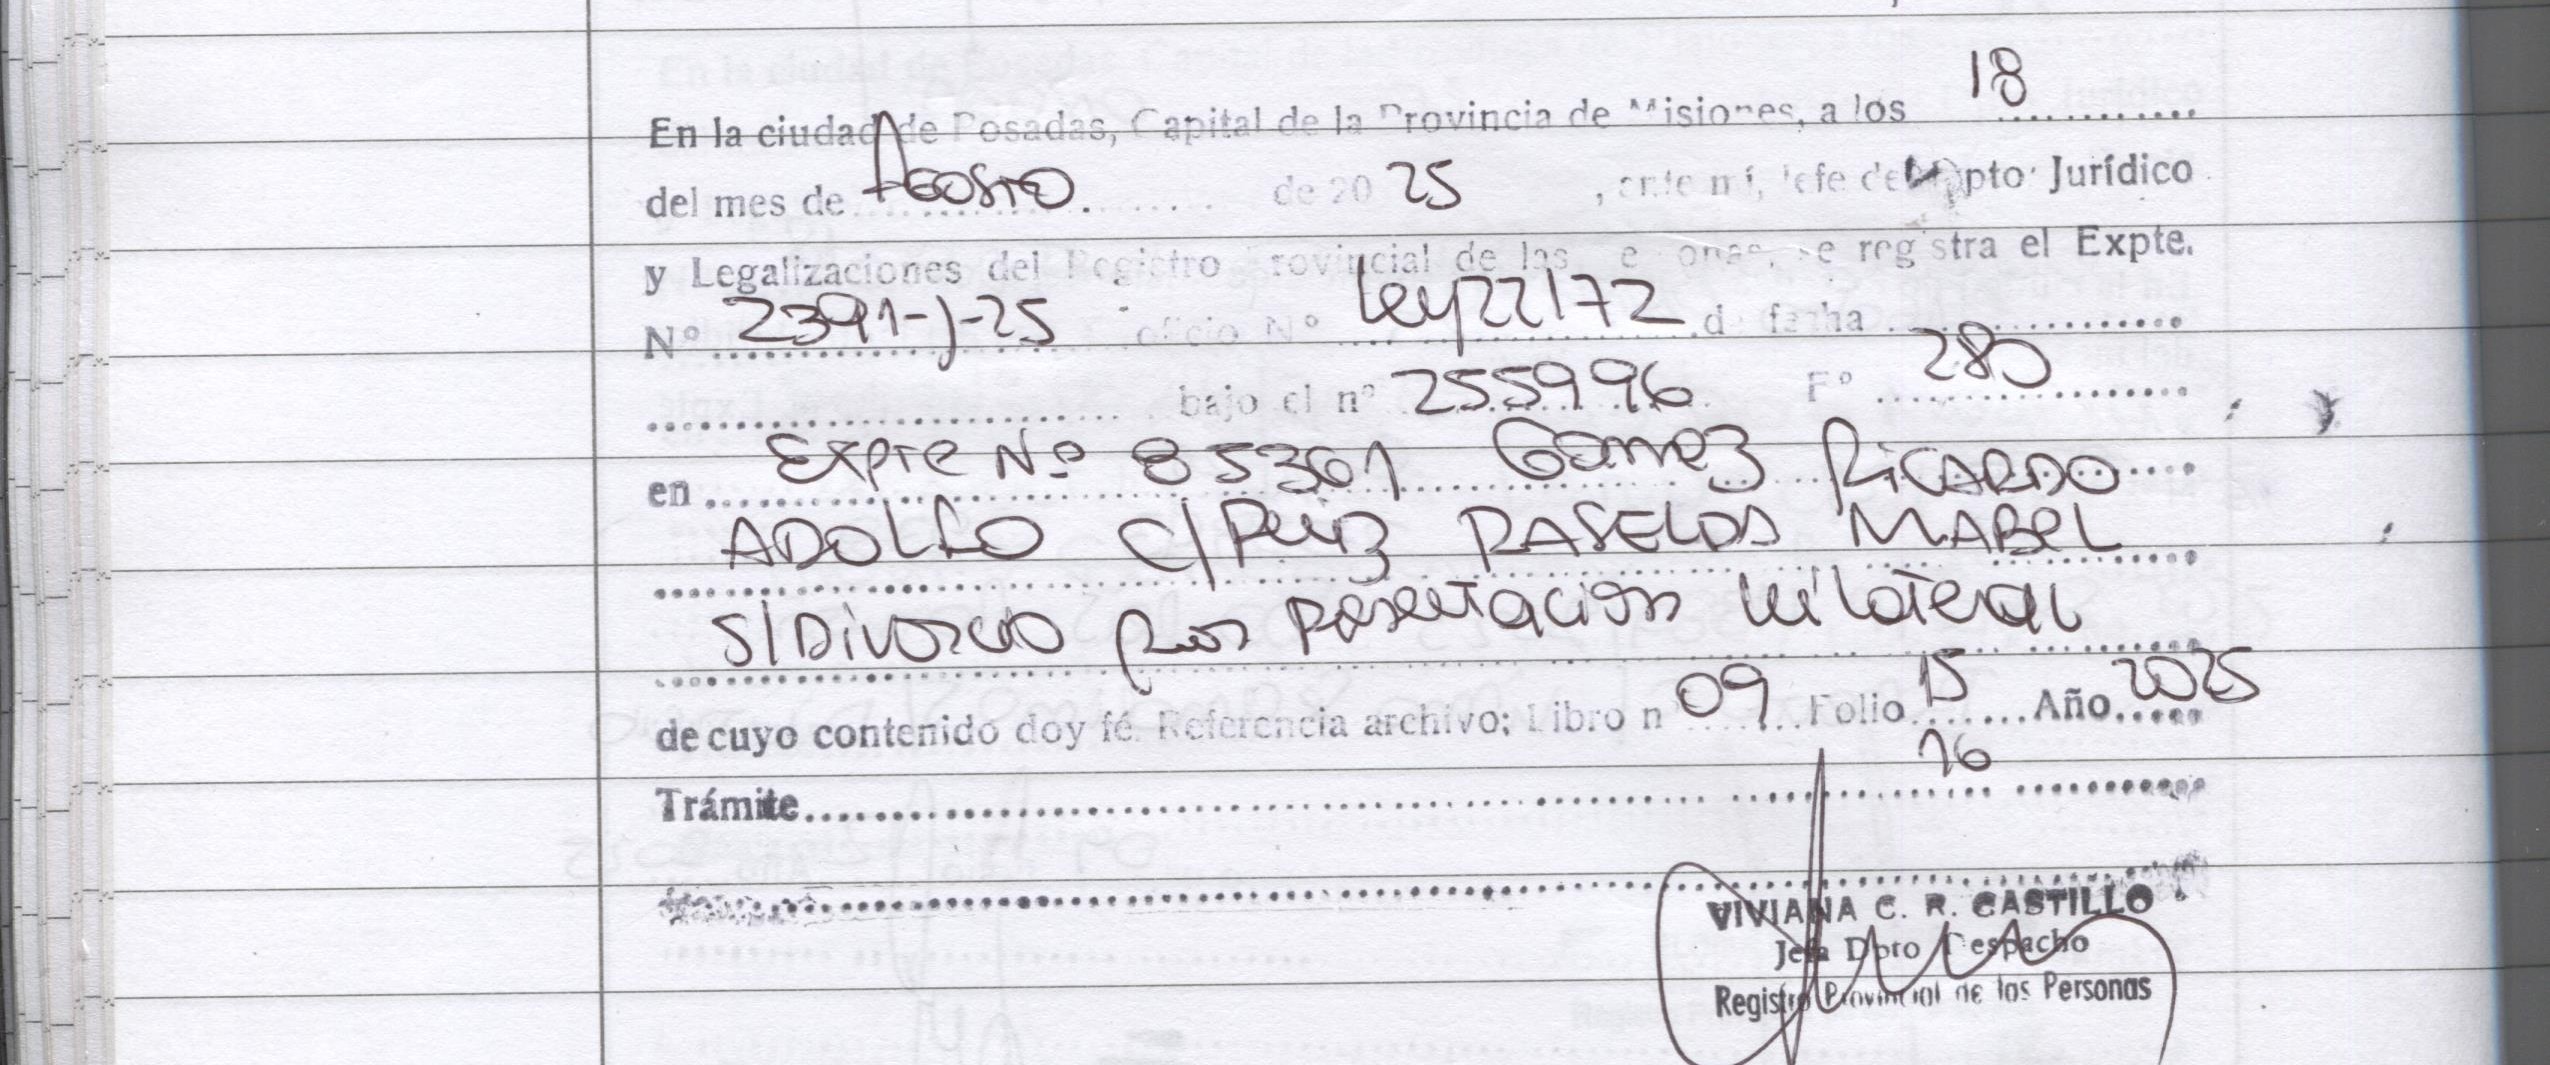 En la ciudad de Posadas, Capital de la Provincia de Misiones, a los 18
del mes de Agosto de 20 25, ante mí, Jefe del Dpto Jurídico
y Legalizaciones del Registro Provincial de las Personas, se registra el Expte.
Nº 2391-J-25 oficio Nº Ley 22172 de fecha
bajo el nº 255996 Fº 280
en Expte Nº 85361 Gomez Ricardo
ADOLFO C/ Ruiz MABEL
S/ Divorcio por Presentacion Unilateral
de cuyo contenido doy fé. Referencia archivo: Libro nº 09 Folio 15 Año 2025
16
Trámite
VIVIANA C. R. CASTILLO
Jefa Dpto Despacho
Registro Provincial de las Personas